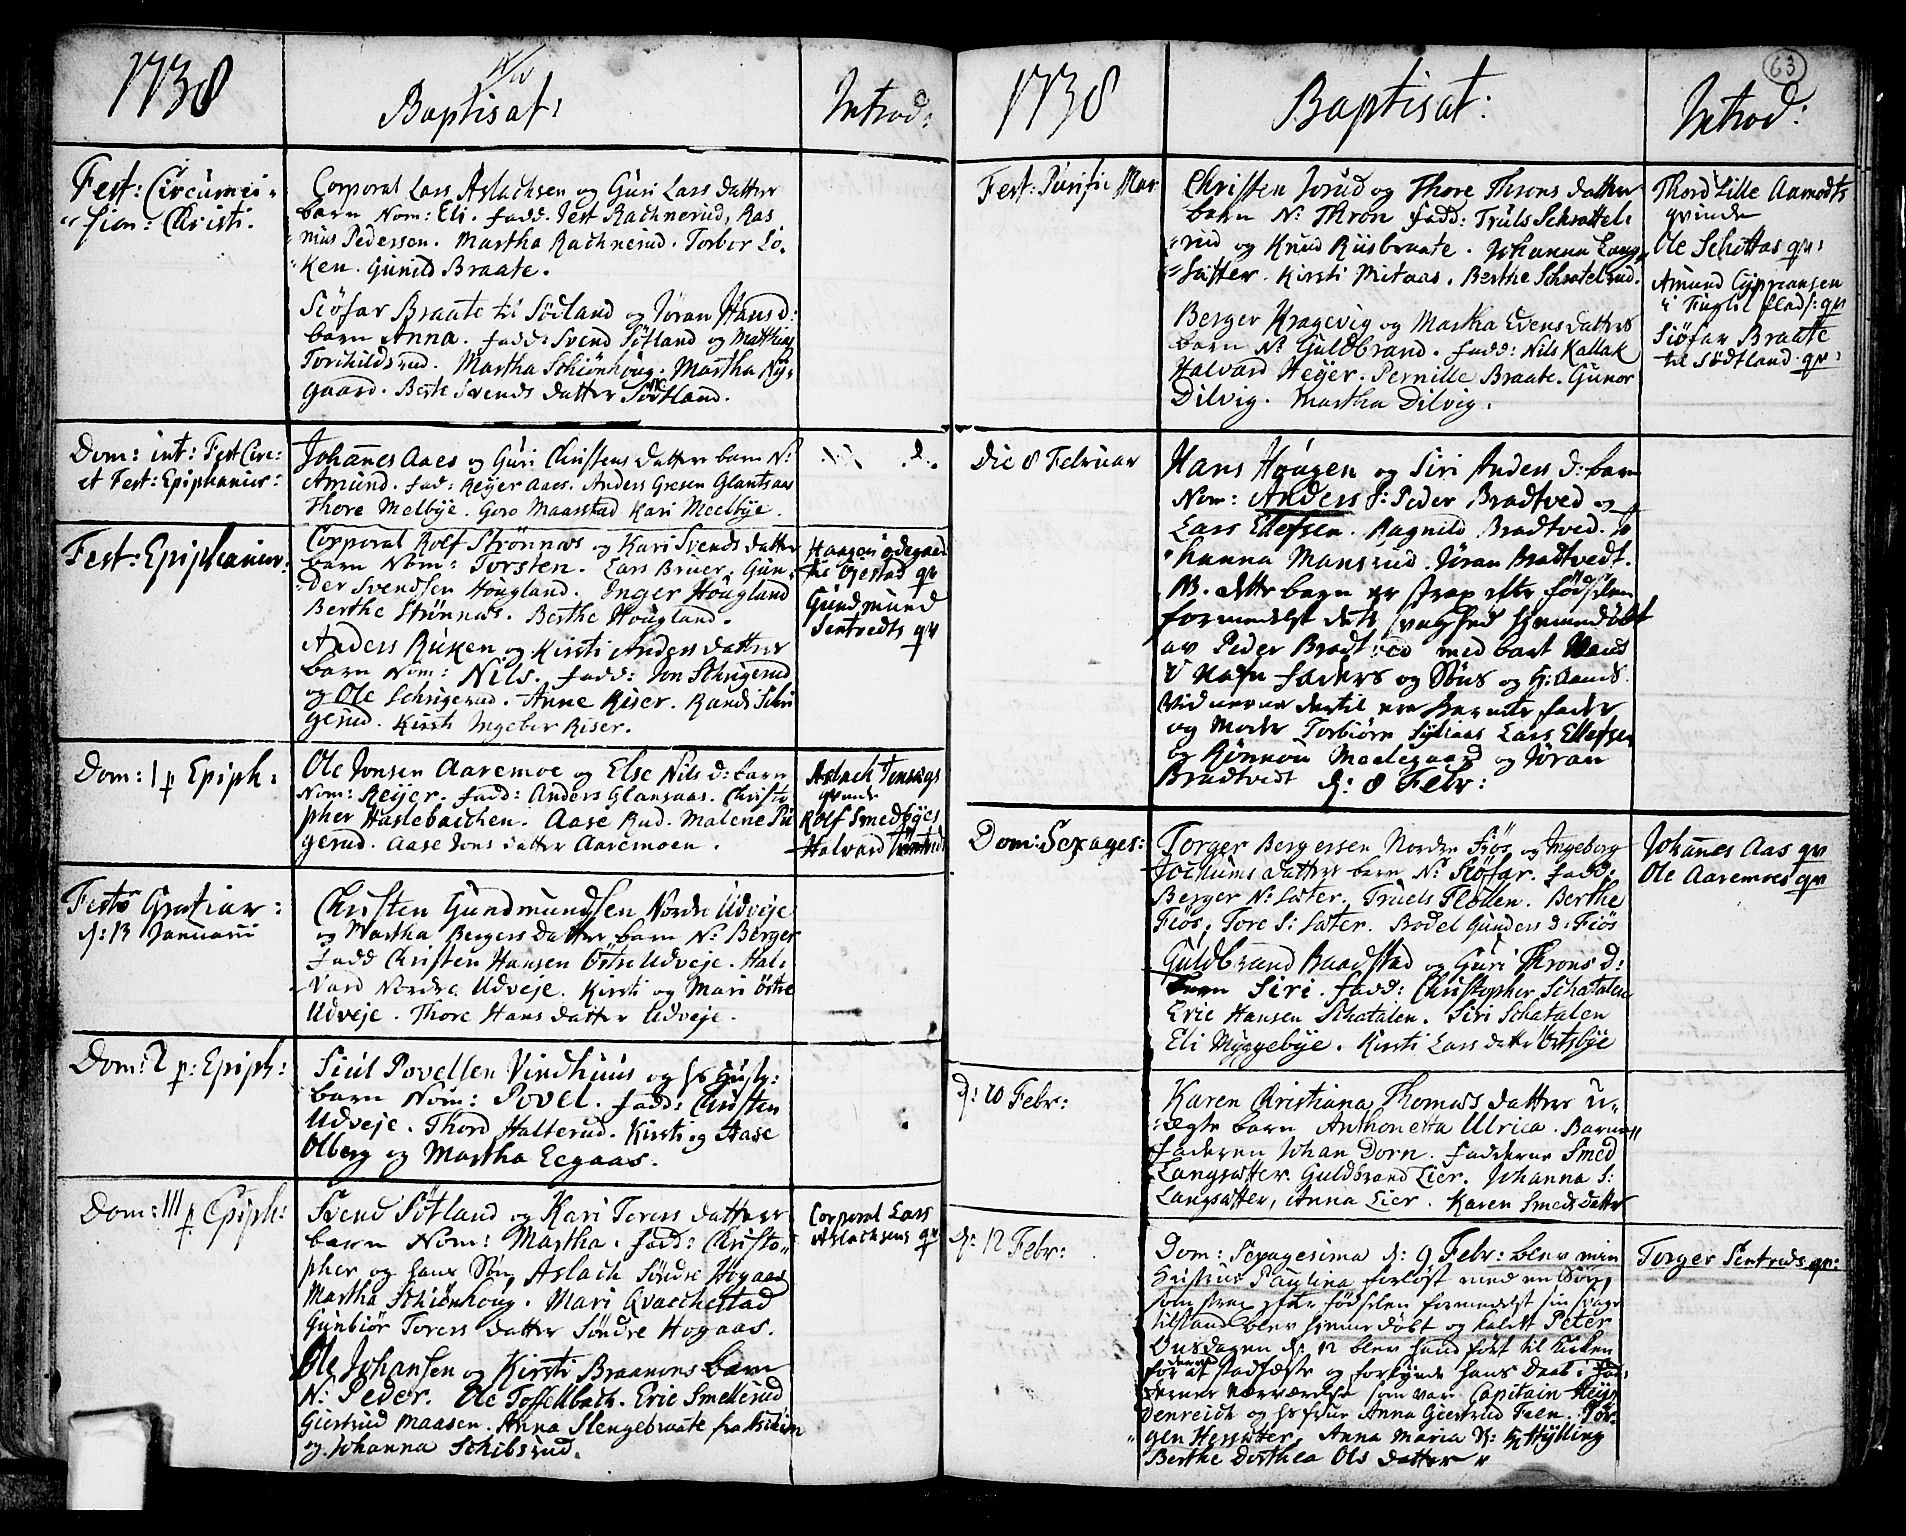 1738
Baptisat:
Introd:
Fest: Circumci-
sion: Christi.
Corporal Lars Aslachsen og Guri Lars datter
barn Nom: Eli. fadd. Jest Rachnerud, Ras
mus Pederssen. Martha Rachnerud. Torbor Lö-
ken. Gunild Braate.
Siöfar Braate til Södland og Jöran Hans d:
barn Anna. fadd: Svend Sötland og Mathias
Torchildsrud. Martha Schiönhoug. Martha Ny-
gaard. Berte Svends datter Södtland.
Dom: int: Fest Circ:
et Fest: Epiphanier:
Johannes Aaes og Guri Christens datter barn N:
Amund. fad: Reyer Aaes. Anders Gresen Glantsaas
Thore Melbye. Goro Maarstad Kari Meelbye.
Fest: Epiphanier:
Corporal Rolf Strönnes og Kari Svends datter
barn Nom: Torsten. Lars Bruer. Gun-
der Svendsen Hougland. Inger Hougland
Berthe Strönnæs. Berthe Hougland.
Haagen ödegaar
Gundmund
Sentvedts qv
Anders Ruken og Kirsti Anders datter
barn Nom: Nils. fadd: Jon Schrigerud
og Ole Schrigerud. Anne Riser. Randi Schri
gerud. Kirsti Ingeber Riser.
Dom: 1 p Epiph:
Ole Jonsen Aaremoe og Else Nils d: barn
Nom: Reijer. fadd: Anders Glansaas. Christo
pher Haslebacchen. Aase Rud. Malene Pu
gerud. Aase Jons datter Aaremoen.
Aslach
qvinde
Rolf Smedbyes
Halvard
Festo Gratiar:
d: 13 Januarii
Christen Gundmundsen Nordre Udveje
og Martha Bergers datter barn N: Berger
fadd Christen Hansen Östre Udveje. Hal-
vard Nordre Udveje. Kirsti og Mari Östre
Udveje. Thore Hans datter Udveje.
Dom: 2 p: Epiph:
Siul Povelsen Vindhuus og hs Hustr:
barn Nom: Povel. fadd: Christen
Udveje. Thord Halterud. Kirsti og Aase
Olberg og Martha Eegaas.
Dom: III p Epiph:
Svend Sötland og Kari Torers datter
barn Nom: Martha. fadd: Christo-
pher og hans Sön Aslach Söndre Högaas
Martha Schiönhoug. Mari Qvacchestad
Gunbiör Torers datter Söndre Hogaas.
Corporal Lars
Aslachsens qv
Ole Johansen og Kirsti Braamons barn
N: Peder. Ole Toffelbach. Eric Smellerud
Giertrud Maasen. Anna Slengebraate fra
og Johanna Schibsrud.
63
1738
Baptisat:
Introd:
Fest: Purific Mar
Christen Jorud og Thore Throns datter
barn N: Thron fadd: Truls Schrattel-
rud og Knud Riisbraate. Johanna Lang-
sætter. Kirsti Mitaas. Berthe Schratelrud.
Thord Lille Aamodts
qvinde
Ole Schottas qv:
Amund Cyprransen
i Fuglil Plads: qv
Siöfar Braate
til Södtland qv:
Berger Kragevig og Martha Evens datter
barn N: Guldbrand. fadd: Nils Kallak
Halvard Heger. Pernille Braate. Gunor
Dilvig. Martha Dilvig.
Die 8 Februar
Hans Hougen og Siri Anders d: barn
Nom: Anders f: Peder Bradtved og
Lars Ellefsen. Ragnild Bradtved. Jo
hanna Mansrud. Jöran Bradtvedt.
NB. dette barn er strax efter födselen
formedelst dets svaghed hiemmedöbt
av Peder Bradtved med bart Vand
i Nafn faders og Söns og H: Aands.
Vidnerne dertil ere barnets fader
og Moder Torbiörn Lars Ellefsen
og Rönnou Meelegaard og Jöran
Bradtvedt d: 8 Febr:
Dom: Sexages:
Torger Bergersen Nordre Fiös og Ingeborg
Jochums datter barn N: Siöfar. fadd:
Berger N: Sæter. Truels Flollen. Berthe
Fiös, Tore S: Sæter. Bodel Gunders d: Fiös
Johannes Aas qv
Ole Aaremoes qv
Guldbrand Raadstad og Guri Throns d:
barn Siri. fadd: Christopher Schatalen
Eric Hansen Schatalen. Siri Schatalen
Eli Myggebye. Kirsti Lars datter Ortsbye
d: 10 Febr:
Karen Christiana Thomæs datter u-
ægte barn Anthonetta Ulrica. Barne-
faderen Johan Dorn. fadderne Smed
Langsætter. Guldbrand Lier. Johanna S:
Langsætter, Anna Lier. Karen Smeds datter
d: 12 Febr:
Dom: Sexagesima d: 9 Febr: blev min
Hustrue Paulina forlöst med en Sön,
som strax efter födselen formedelst sin svage
tilstand blev hiemmedöbt og kaldet Peter
Onsdagen d: 12 blev hand fört til Kirken
for at stadfæste og forkynde hans Daab i fad-
dernes nærværelse som var Capitain Heij-
denreich og hs frue Anna Giertrud Feen. Jör-
gen Hessæter, Anna Maria Hylling
Berthe Dorthea Ols datter
Torger Sentveds qv: